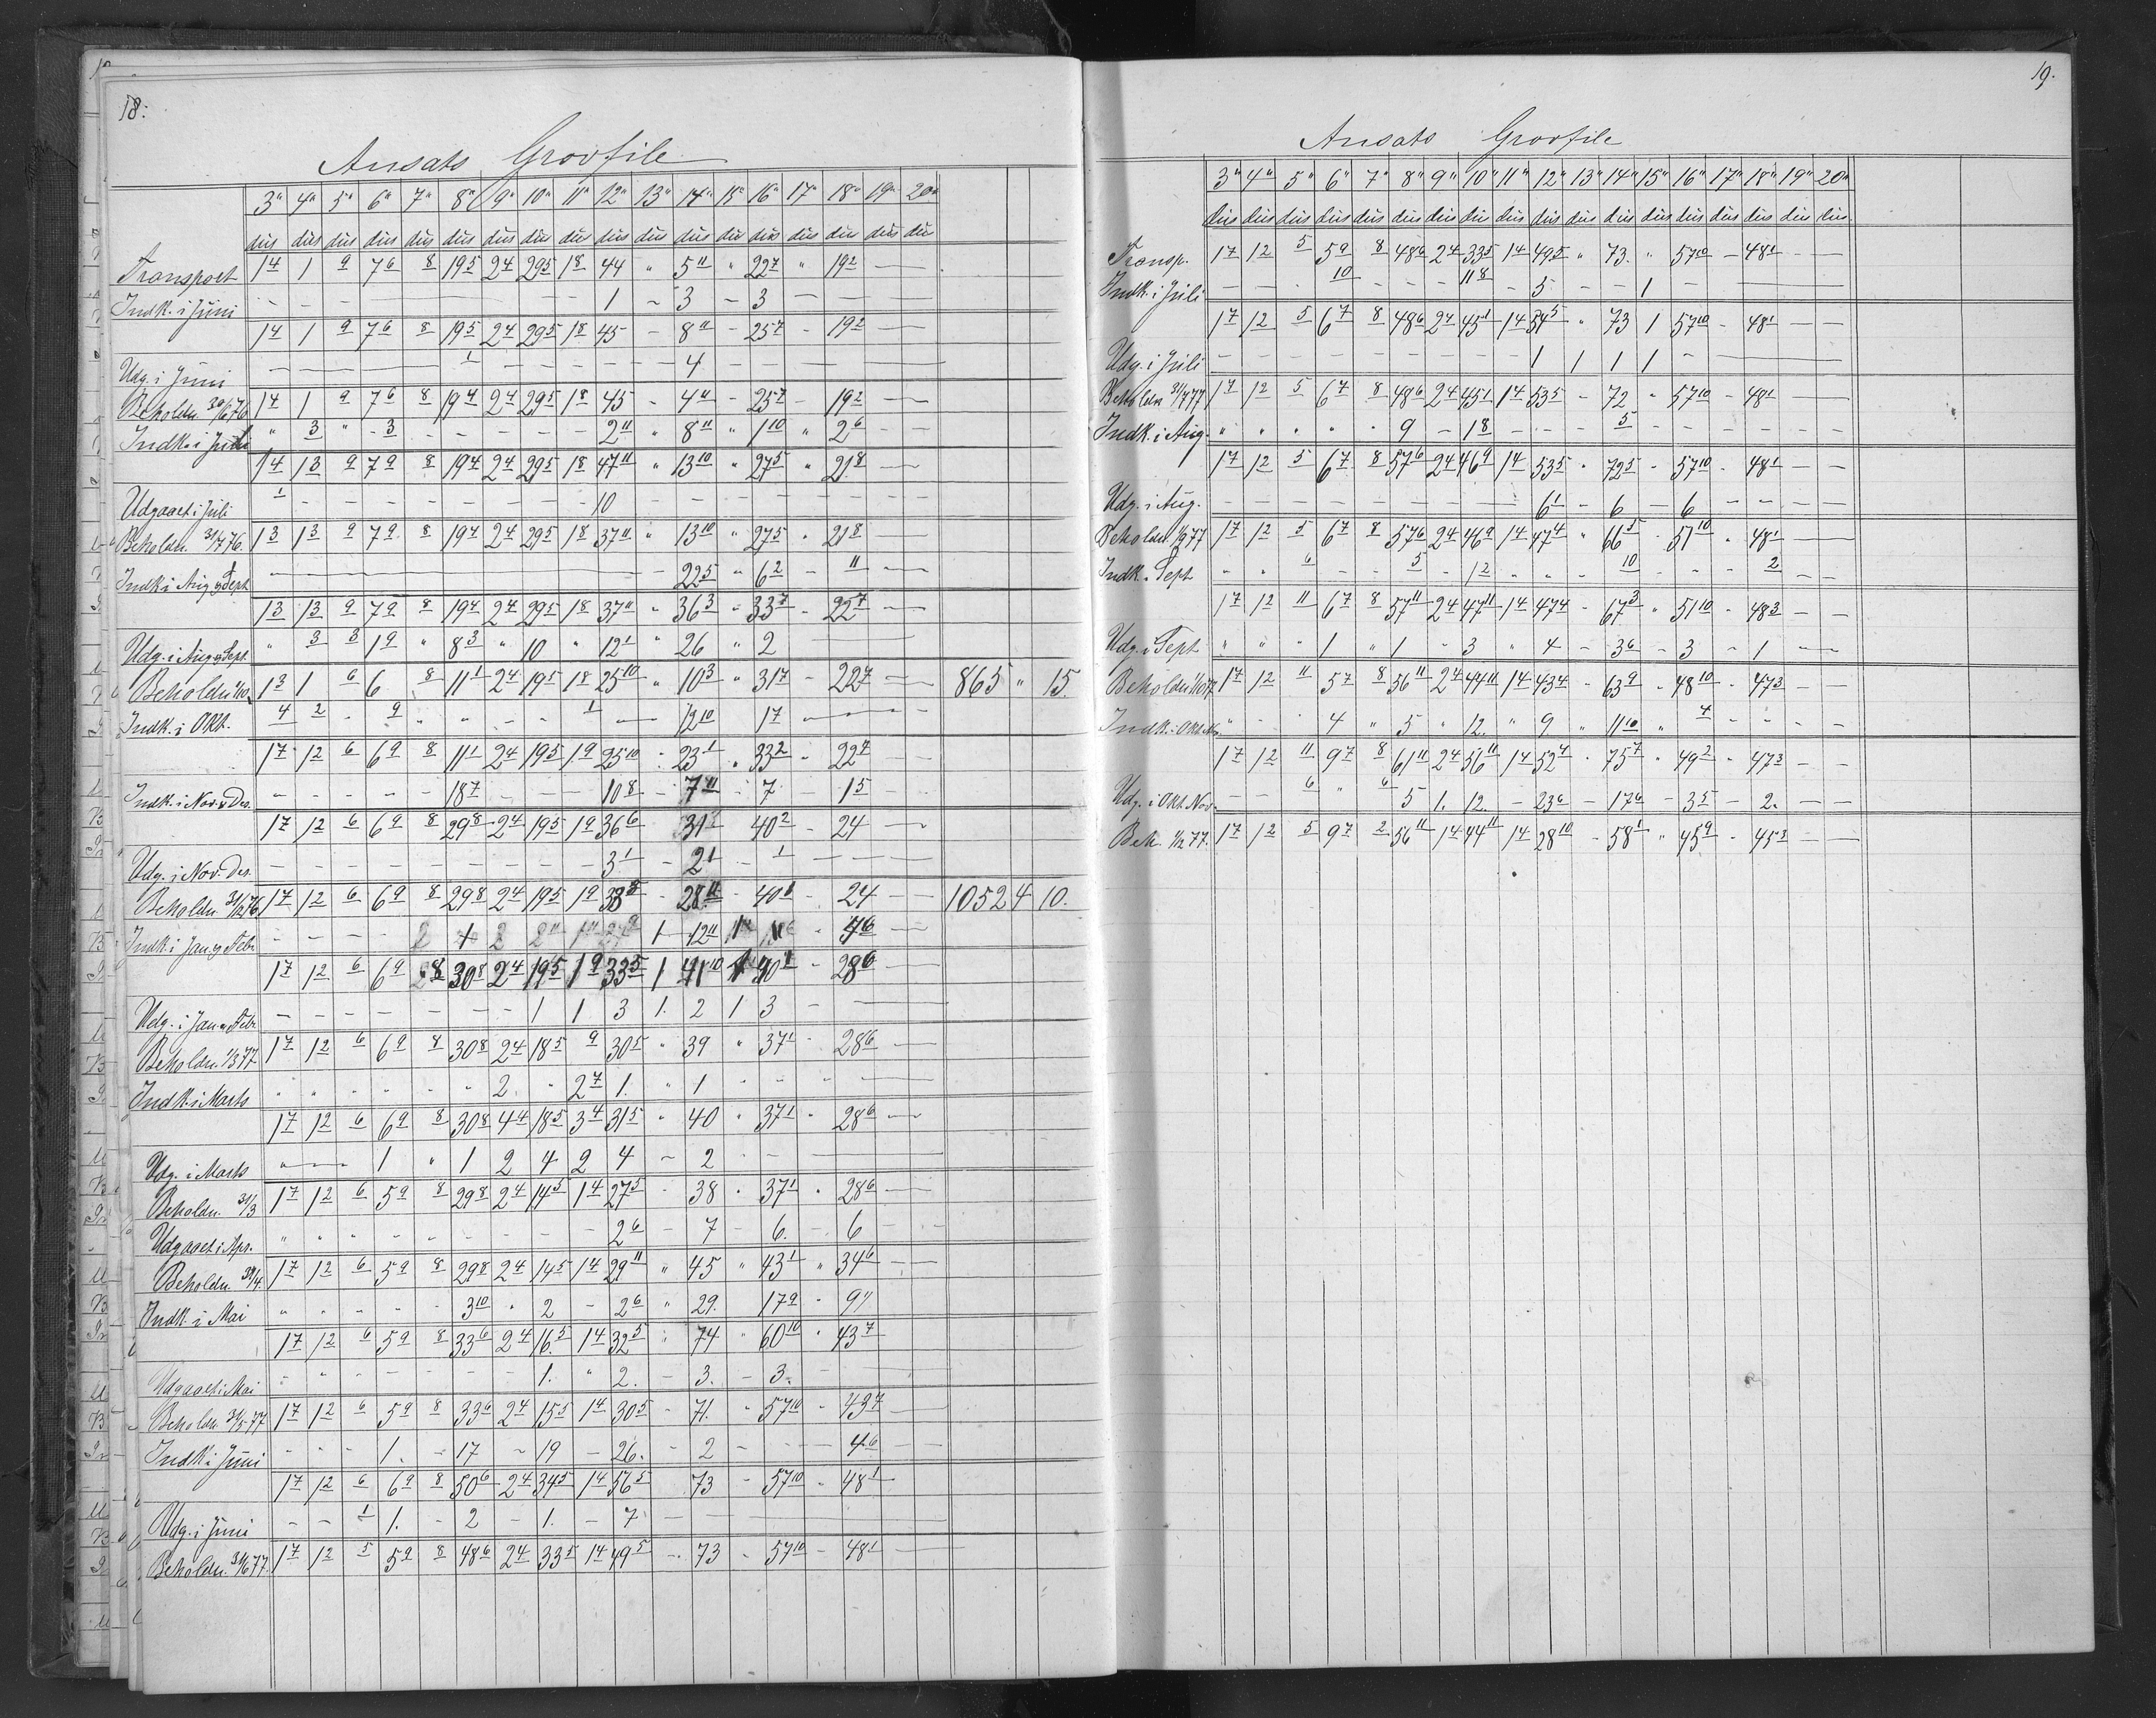 18.
Ansats Grovfile
3" 4" 5" 6" 7" 8" 9" 10" 11" 12" 13" 14" 15" 16" 17" 18" 19" 20"
dus dus dus dus dus dus dus dus dus dus dus dus dus dus dus dus dus dus
Transport 1 4 1 9 7 6 8 19 5 2 4 29 5 1 8 44 " 5 11 " 22 7 " 19 2 — —
Indk. i Juni - - - - - - - - - 1 - 3 - 3 - - -
1 4 1 9 7 6 8 19 5 2 4 29 5 1 8 45 - 8 11 - 25 7 - 19 2 — —
Udg. i Juni - - - - - 1 - - - - - 4 - - - - -
Beholdn. 30/6 76 1 4 1 9 7 6 8 19 4 2 4 29 5 1 8 45 - 4 11 - 25 7 - 19 2 — —
Indk. i Juli " 3 " 3 - - - - - 2 11 " 8 11 " 1 10 " 2 6 — —
1 4 1 3 9 7 9 8 19 4 2 4 29 5 1 8 47 11 " 13 10 " 27 5 " 21 8 — —
Udgaaet i Juli 1 - - - - - - - - 10 - - - - - - - -
Beholdn. 31/7 76. 1 3 1 3 9 7 9 8 19 4 2 4 29 5 1 8 37 11 " 13 10 " 27 5 " 21 8 — —
Indk i Aug og Sept — 22 5 " 6 2 - 11 — —
1 3 1 3 9 7 9 8 19 4 2 4 29 5 1 8 37 11 " 36 3 " 33 7 - 22 7 — —
Udg. i Aug og Sept. " 3 3 1 9 " 8 3 " 10 " 12 1 " 26 " 2 —
Beholdn 1/10 1 3 1 6 6 8 11 1 2 4 19 5 1 8 25 10 " 10 3 " 31 7 - 22 7 — — 865 " 15.
Indk. i Okt. 4 2 - 9 " " - - 1 — 12 10 1 7 - - -
1 7 1 2 6 6 9 8 11 1 2 4 19 5 1 9 25 10 - 23 1 " 33 2 - 22 7 — —
Indk. i Nov. & Des. - - - - - 18 7 - - - 10 8 - 7 11 - 7 - 1 5 — —
1 7 1 2 6 6 9 8 29 8 2 4 19 5 1 9 36 6 31 40 2 - 24 — —
Udg. i Nov. Des. - - - - - - - - - 3 1 - 2 1 - 1 - - - -
Beholdn. 31/12 76 1 7 1 2 6 6 9 8 29 8 2 4 19 5 1 9 33 5 - 28 11 - 40 1 - 24 — — 1052 4 10.
Indk. i Jan. og Febr - - - - 1 12 11 4 6 —
1 7 1 2 6 6 9 8 30 8 2 4 19 5 1 9 33 5 1 41 10 1 40 1 - 28 6 — —
Udg. i Jan og Febr - - - - - - - 1 1 3 1. 2 1 3 - - -
Beholdn. 1/3 77 1 7 1 2 6 6 9 8 30 8 2 4 18 5 9 30 5 " 39 " 37 1 - 28 6 — —
Indk. i Marts " " " " " " 2 " 2 7 1. " 1 " " " " —
1 7 1 2 6 6 9 8 30 8 4 4 18 5 3 4 31 5 " 40 " 37 1 " 28 6 — —
Udg. i Marts " — 1 " 1 2 4 2 4 - 2 - - -
Beholdn. 31/3 1 7 1 2 6 5 9 8 29 8 2 4 14 5 1 4 27 5 - 38 " 37 1 " 28 6 — —
Udgaaet i Apr. " " " " - - - - - 2 6 - 7 - 6. - 6 - -
Beholdn. 30/4. 1 7 1 2 6 5 9 8 29 8 2 4 14 5 1 4 29 11 " 45 " 43 1 " 34 6 — —
Indk. i Mai " " " " - 3 10 " 2 - 2 6 " 29. 17 9 - 9 1 —
1 7 1 2 6 5 9 8 33 6 2 4 16. 5 1 4 32 5 " 74 " 60 10 " 43 7
Udgaaet i Mai - " - - - - - 1. " 2. - 3. - 3. -
Beholdn. 31/5 77 1 7 1 2 6 5 9 8 33 6 2 4 15 5 1 4 30 5 - 71. " 57 10 - 43 7
Indk i Juni - - - 1. - 17 - 19 - 26. - 2 - - - 4 6 —
1 7 1 2 6 6 9 8 50 6 2 4 34 5 1 4 56 5 73 - 57 10 - 48 1
Udg. i Juni - - 1 1. - 2 - 1. - 7. - -
Beholdn. 31/6 77. 1 7 1 2 5 5 9 8 48 6 2 4 33 5 1 4 49 5 - 73 - 57 10 - 48 1 —
19.
Ansats Grovfile
3" 4" 5" 6" 7" 8" 9" 10" 11" 12" 13" 14" 15" 16" 17" 18" 19" 20"
dus dus dus dus dus dus dus dus dus dus dus dus dus dus dus dus dus dus.
Transp. 1 7 1 2 5 5 9 8 48 6 2 4 33 5 1 4 49 5 " 73. " 57 10 - 48 1 - -
Indk. i Juli - - - 10 - - - 11 8 - 5 - - 1 - —
1 7 1 2 5 6 7 8 48 6 2 4 45 1 1 4 54 5 " 73 1 57 10 - 48 1 - -
Udg. i Juli - - - - - - - - - 1 1 1 1 - —
Beholdn 31/7 77 1 7 1 2 5 6 7 8 48 6 2 4 45 1 1 4 53 5 - 72 " 57 10 - 48 1 — —
Indk. i Aug. " " " " " 9 - 1 8 - - - 5 - - - - - -
1 7 1 2 5 6 7 8 57 6 2 4 46 9 1 4 53 5 " 72 5 - 57 10 - 48 1 - -
Udg. i Aug. - - - - - - - - - 6 1 - 6 - 6 - - - -
Beholdn 1/9 77 1 7 1 2 5 6 7 8 57 6 2 4 46 9 1 4 47 4 " 66 5 - 51 10 " 48 1 — —
Indk. i Sept " " 6 - - 5 - 1 2 " " " 10 - - - 2 - -
1 7 1 2 11 6 7 8 57 11 2 4 47 11 1 4 47 4 - 67 3 " 51 10 - 48 3 - -
Udg. i Sept " " " 1 " 1 " 3 " 4 - 3 6 - 3 - 1 - -
Beholdn 1/10 77. 1 7 1 2 11 5 7 8 56 11 2 4 44 11 1 4 43 4 - 63 9 " 48 10 - 47 3 - -
Indk. i Okt. Nov " - - 4 " 5 " 12. " 9 " 11 10 " 4 - - - -
1 7 1 2 11 9 7 8 61 11 2 4 56 11 1 4 52 4 " 75 7 " 49 2 - 47 3 - -
Udg. i Okt Nov. - - 6 " 6 5 1. 12. - 23 6 - 17 6 - 3 5 - 2. - -
Beh. 1/12 77. 1 7 1 2 5 9 7 2 56 11 1 4 44 11 1 4 28 10 - 58 1 " 45 9 - 45 3 - -